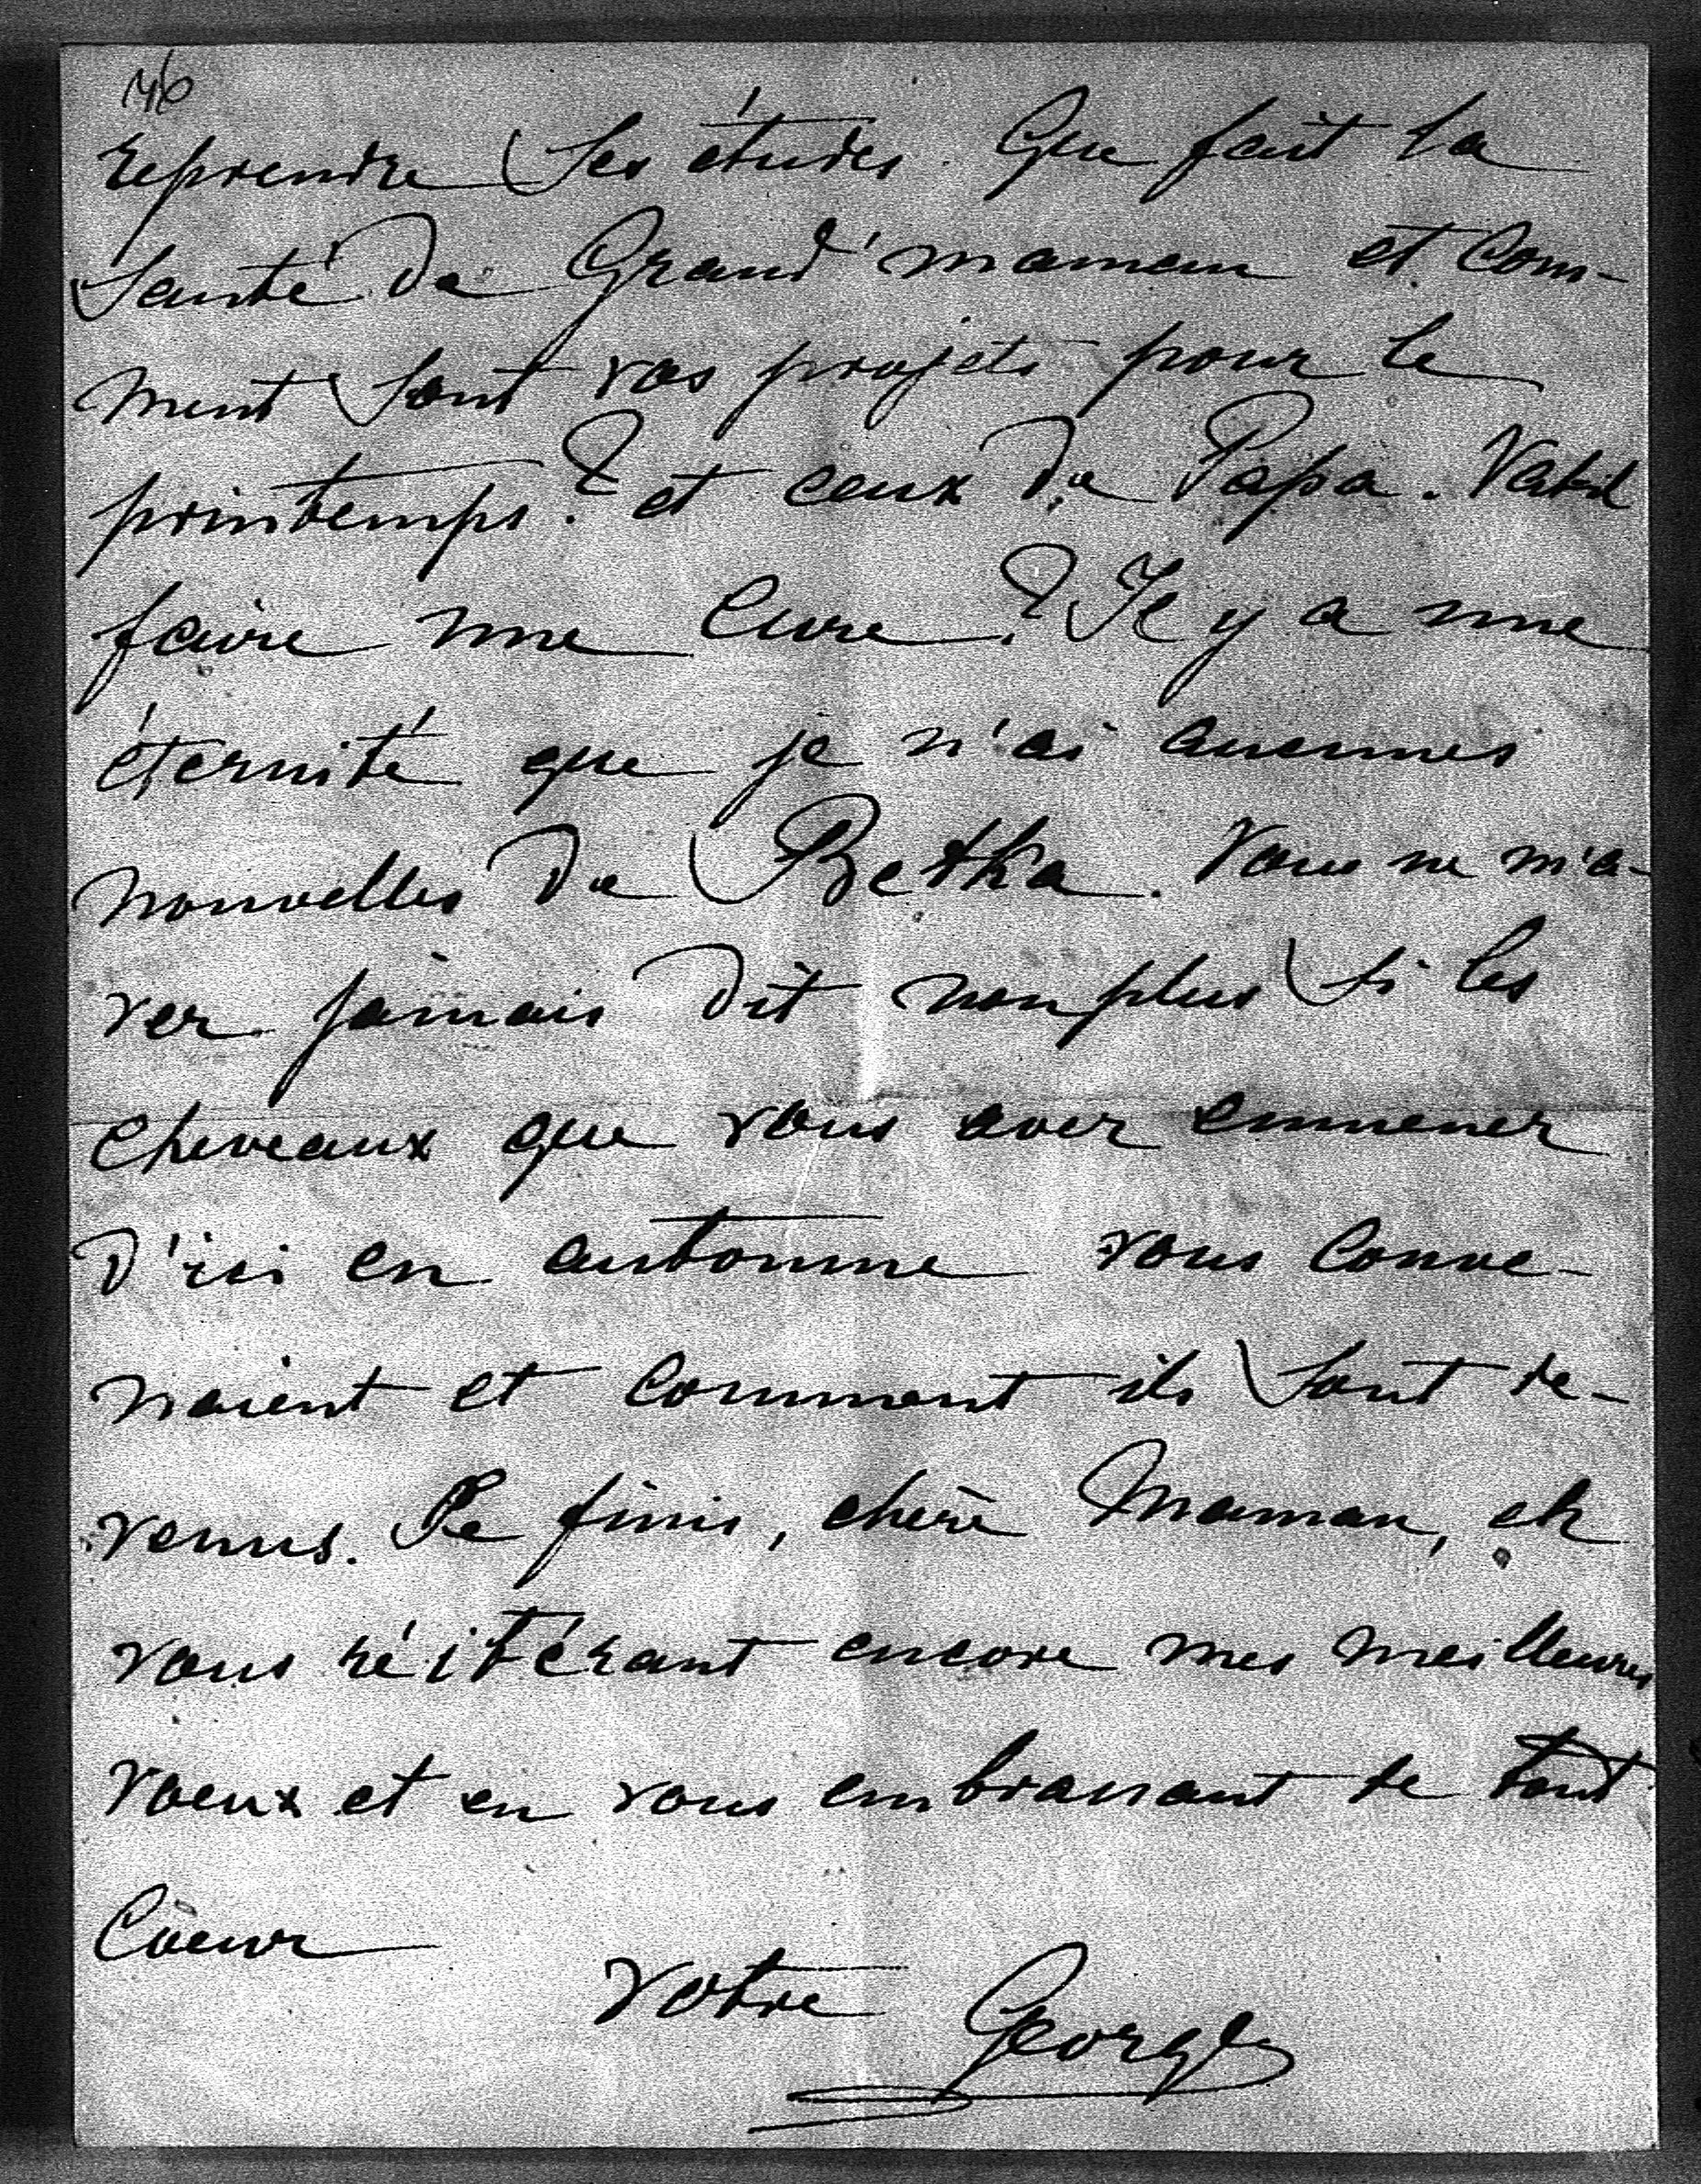 46
reprendre ses études. Que fait la
santé de Grand'maman et com-
ment sont vos projets pour le
printemps? et ceux de Papa. Vat-il
faire une cure? Il y a une
éternité que je n'ai aucunes
nouvelles de Betka. Vous ne m'a-
vez jamais dit non plus si les
cheveaux que vous avez emmener
d'ici en automne vous conve-
naient et comment ils sont de-
venus. Je finis, chère Maman, en
vous réitérant encore mes meilleures
voeux et en vous embrassant de tout
coeur
votre Georges